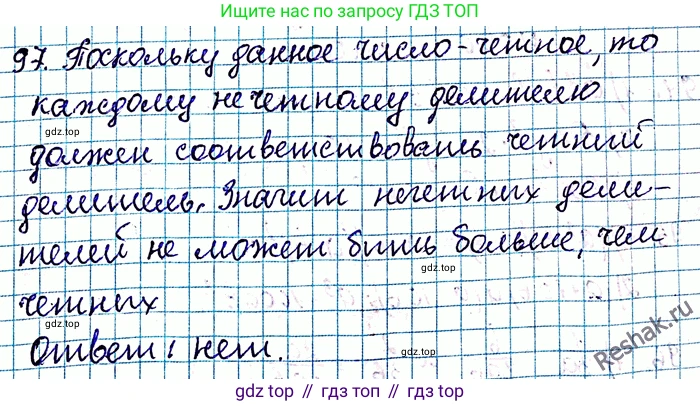 Ищите нас по запросу ГДЗ ТОП
97. Поскольку данное число - четное, то
каждому нечетному делителю
gdz.top
gdz.top
должен соответствовать четний
делитель. Значит нечетних дели-
телей не может бить больше, чем
gdz.top
четних
Ответ: нет.
gdz.top
Reshak.ru
gdz top // гдз топ // gdz.top // гдз топ